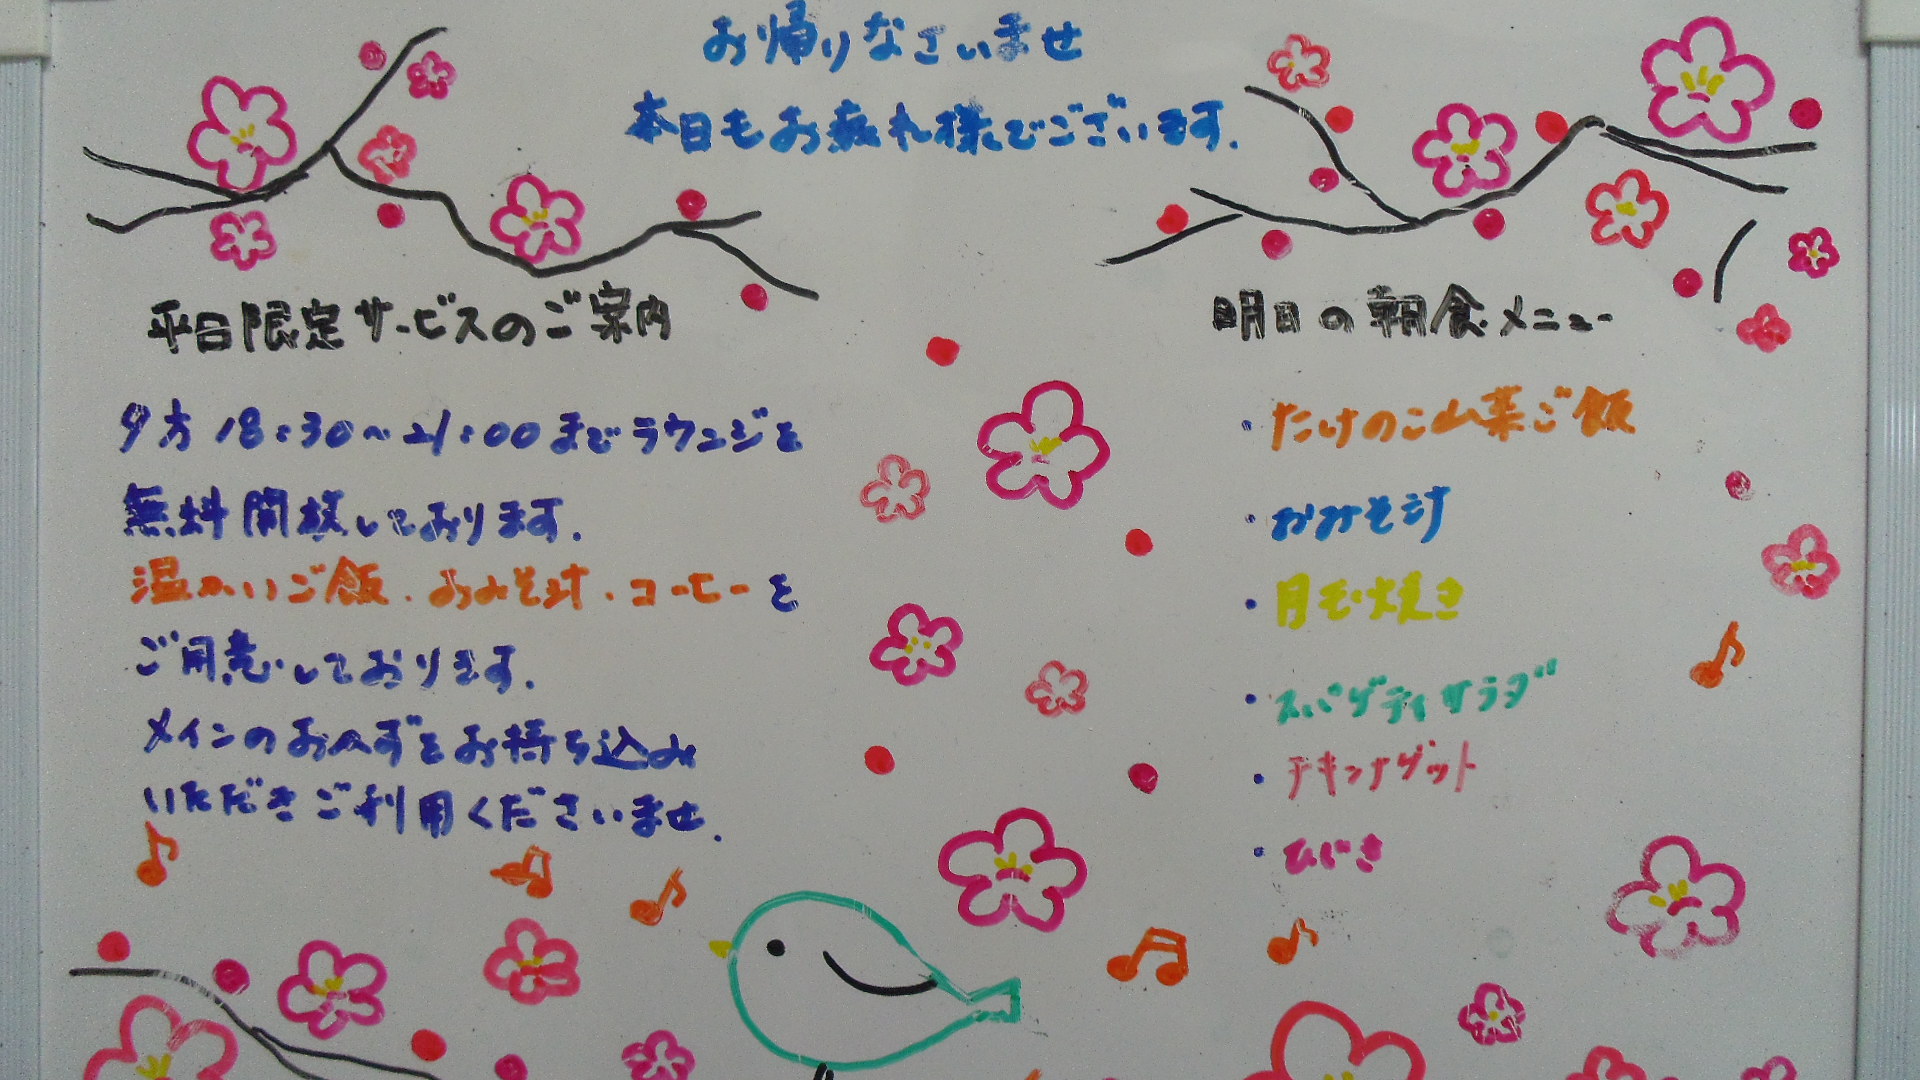 お帰りなさいませ
本日もお疲れ様でございます.
平日限定サービスのご案内
夕方18:30〜21:00までラウンジを
無料開放しております.
温かいご飯.おみそ汁.コーヒーを
ご用意しております.
メインのおかずをお持ち込み
いただきご利用くださいませ.
明日の朝食メニュー
・たけのこ山菜ご飯
・おみそ汁
・月毛焼き
・スパゲティサラダ
・チキンナゲット
・ひじき